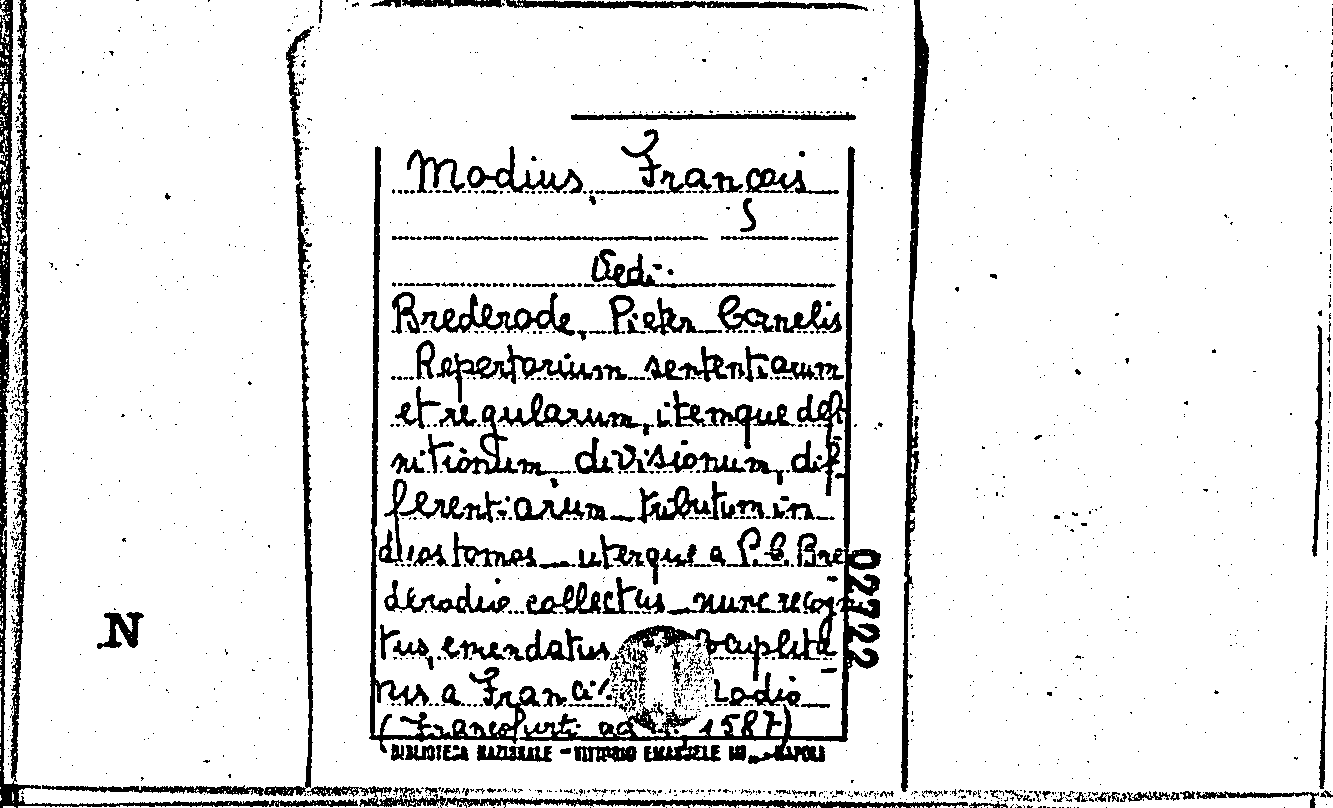 Modius, François
Vedi:
Brederode, Pieter Cornelis
Repertorium sententiarum
et regularum, itemque defi-
nitionum, divisionum, dif-
ferentiarum tributum in
duos tomos uterque a P. C. Bre-
derodio collectus nunc recogni-
tus, emendatus
a
( Francofurti 1587)
02722
N
BIBLIOTECA NAZIONALE - VITTORIO EMANUELE III - NAPOLI